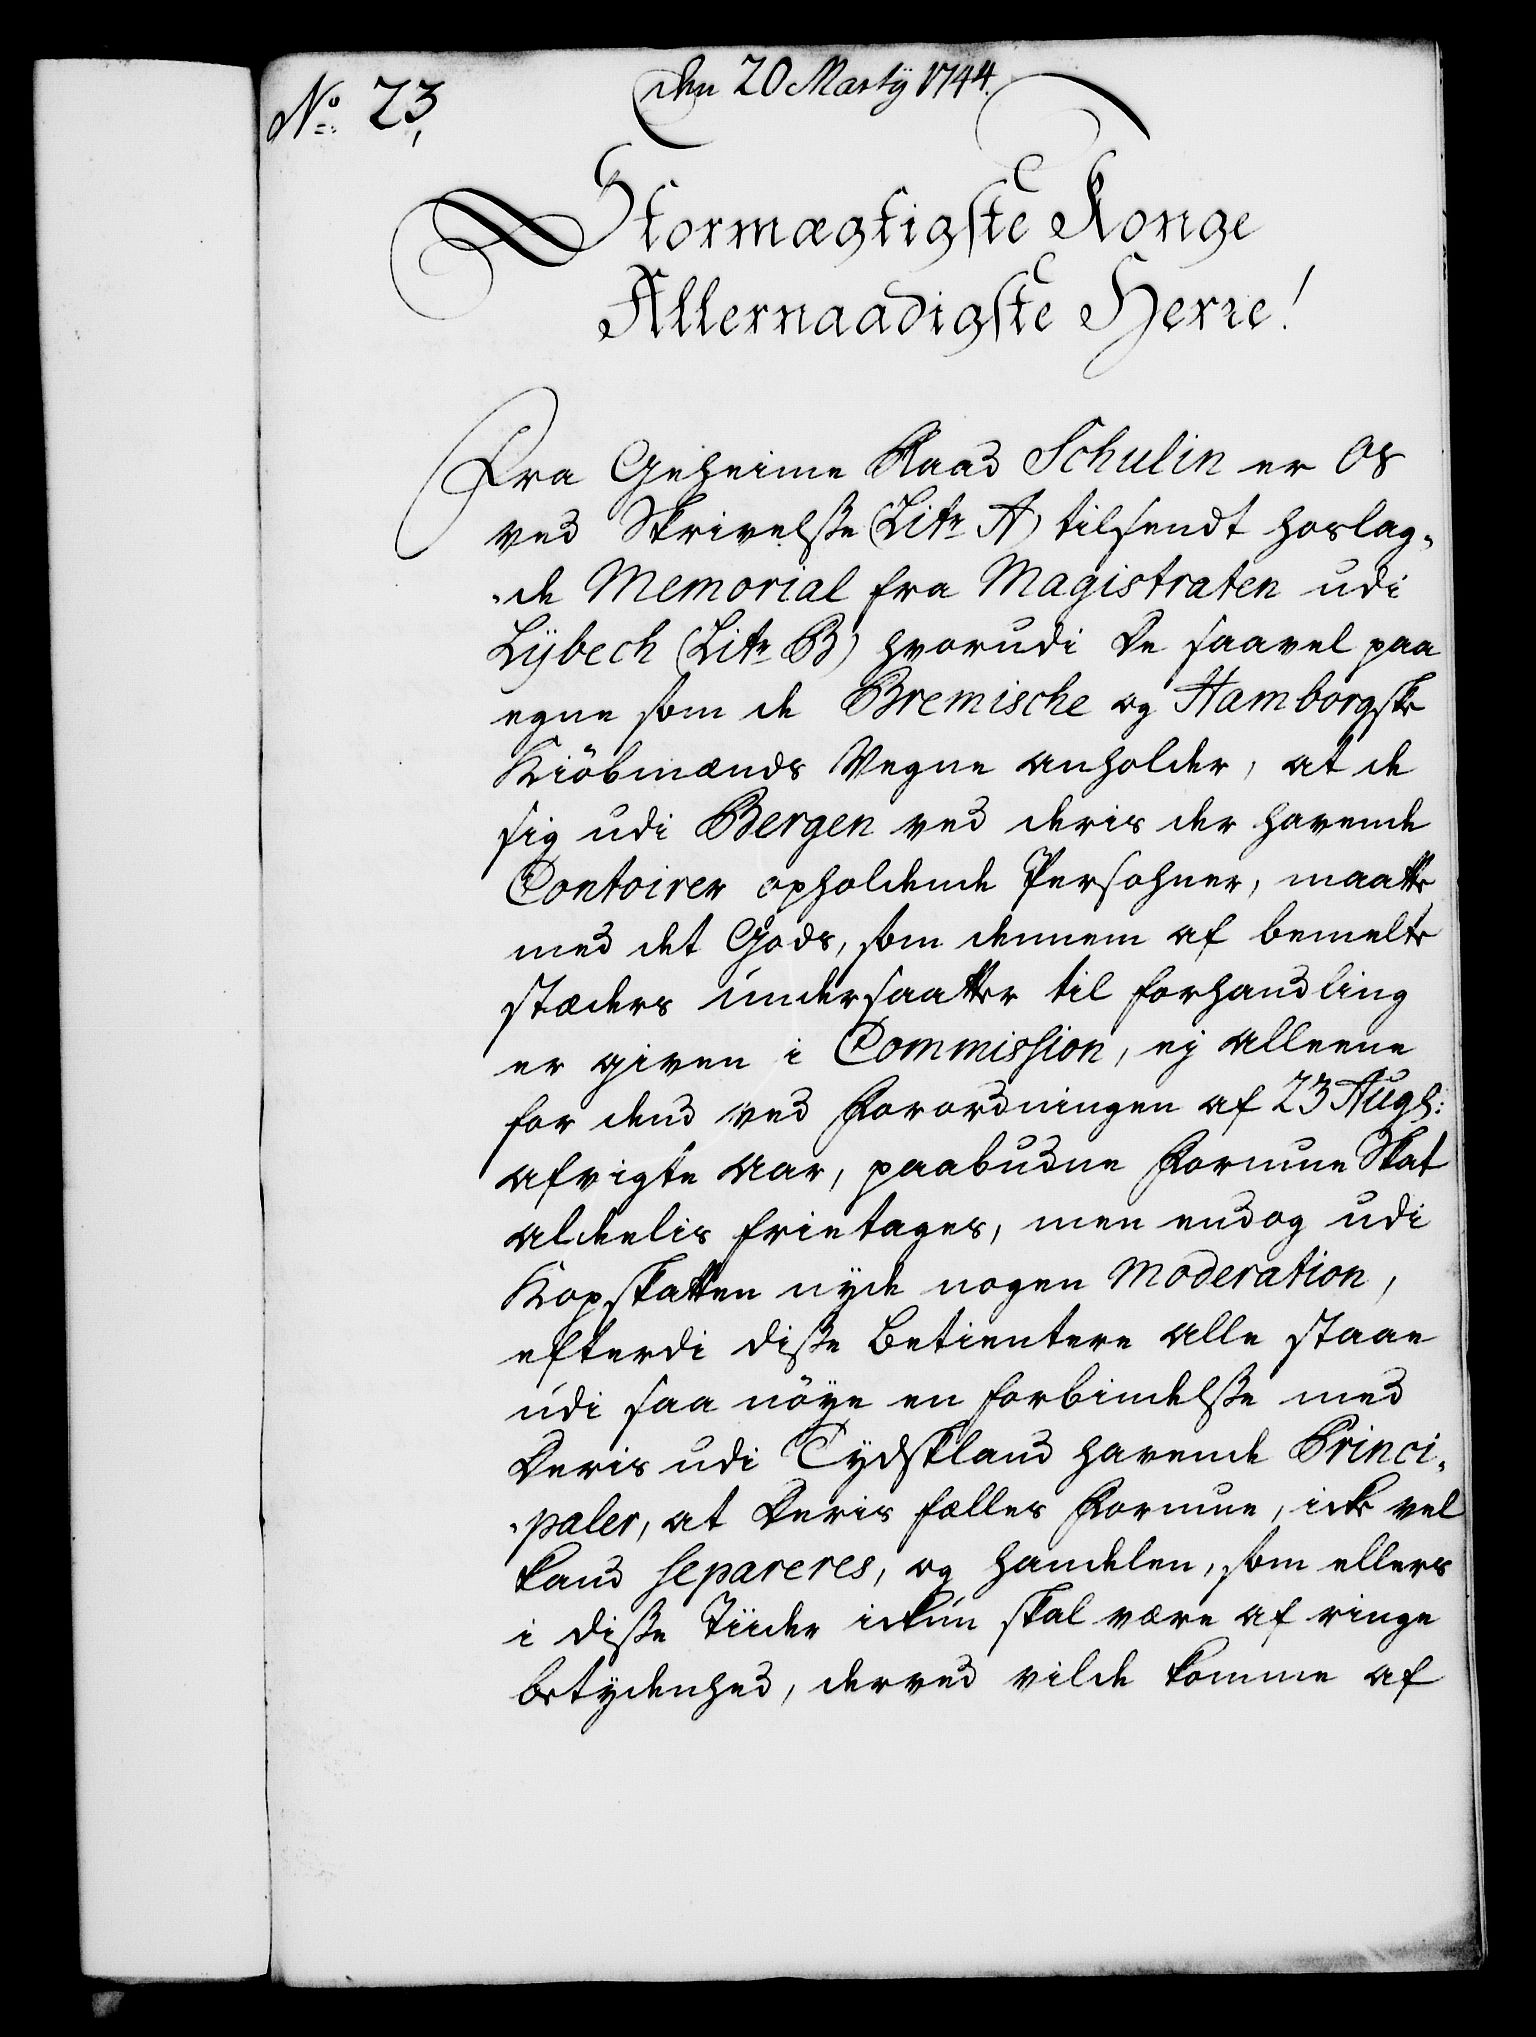 No. 23,
den 20 Marty 1744.
Stormægtigste Konge
Allernaadigste Herre!
Fra Geheime Raad Schulin er Os
ved Skrivelsse (Litr A) tilsendt hoslag„
„de Memorial fra Magistraten udi
Lÿbech (Litr B) hvorudi De saavel paa
egne som de Bremische og Hamborgske
Kiöbmænds Vegne anholder, at de
sig udi Bergen ved deris der havende
Contoirer opholdende Persohner, maatte
med det Gods, som dennem af bemelte
stæders undersaatter til forhandling
er given i Commission, ej alleene
for dend ved Forordningen af 23 Augs:
afvigte Aar, paabudne Formue Skat
aldeelis frietages, men endog udi
Kopskatten nyde nogen Moderation,
efterdi disse Betientere alle staae
udi saa nöye en forbindelsse med
Deris udi Tydskland havende Princi„
„paler, at Deris fælles Formue, icke vel
kand separeres, og handelen, som ellers
i disse Tiider ickun skal være af ringe
betydenhed, derved vilde komme af